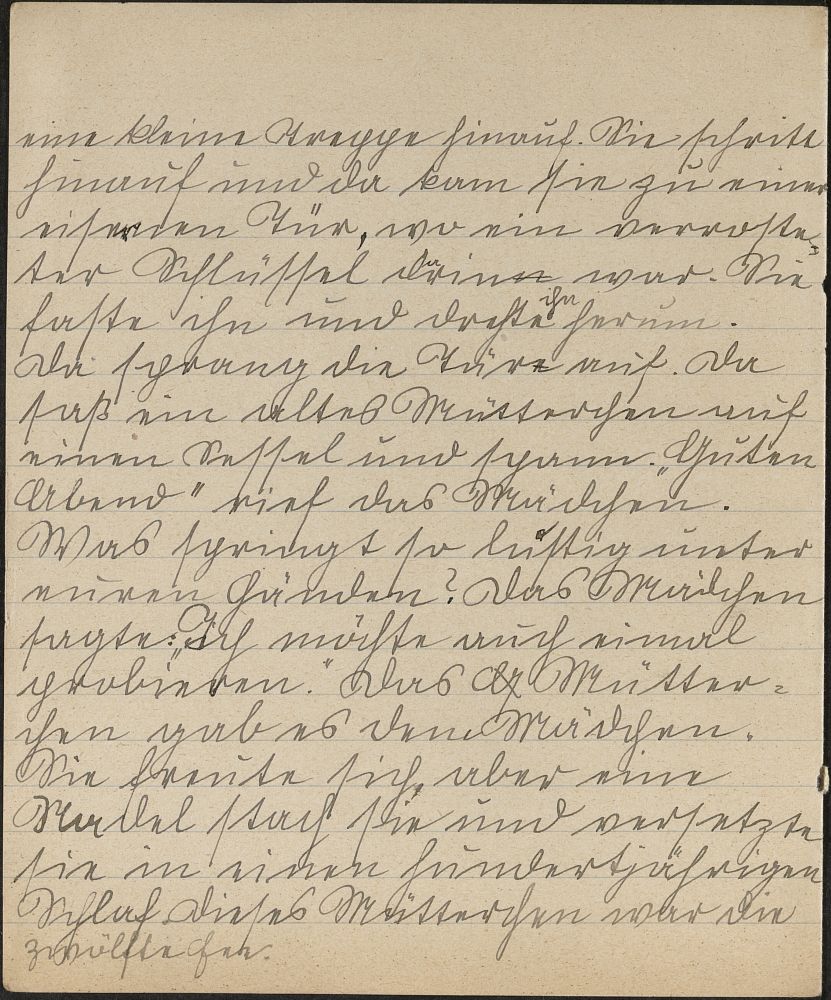 eine kleine Treppe hinauf. Sie schritt
hinauf und da kam sie zu einer
eisernen Tür, wo ein verroste-
ter Schlüssel darin war. Sie
faste ihn und drehte ihn herum.
Da sprang die Türe auf. Da
saß ein altes Mütterchen auf
einen Sessel und spann. „Guten
Abend" rief das Mädchen.
Was springt so lustig unter
euren Händen? Das Mädchen
sagte: „Ich möchte auch eimal
probieren." Das Mütter-
chen gab es dem Mädchen.
Sie freute sich, aber eine
Nadel stach sie und versetzte
sie in einen hundertjährigen
Schlaf. Dieses Mütterchen war die
zwölfte Fee.